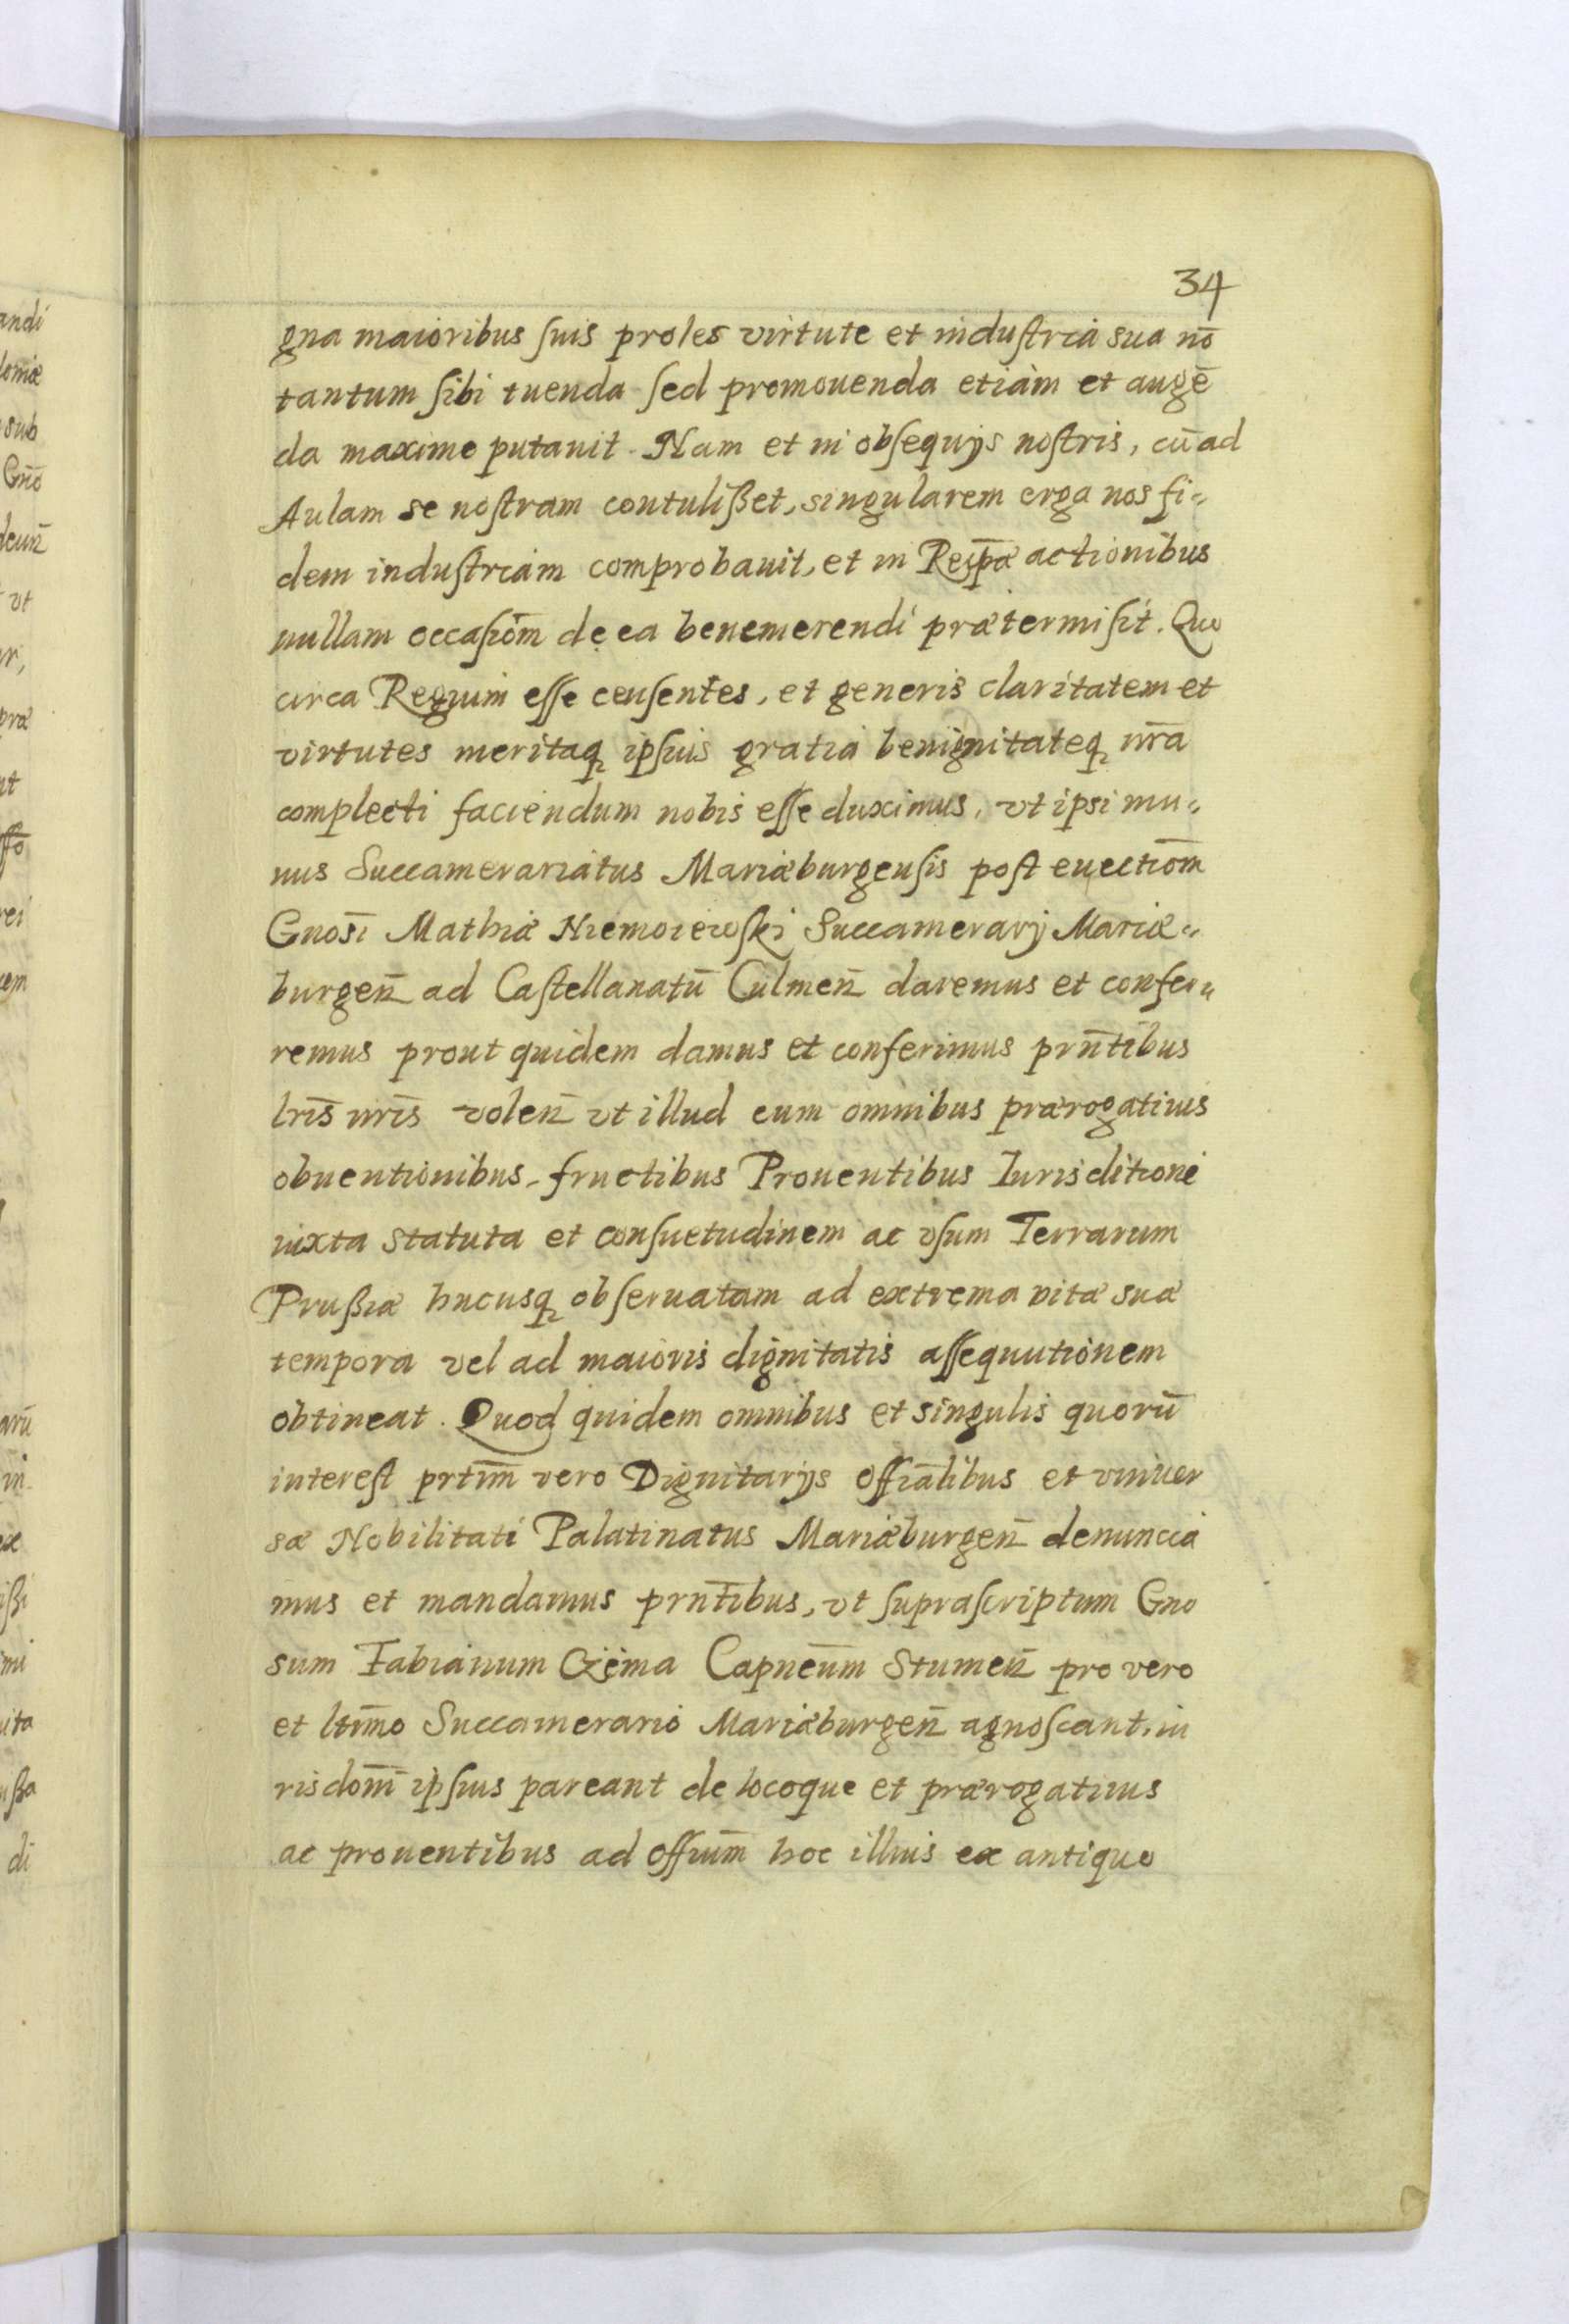 34
gna maioribus ſuis proles virtute et induſtria sua nō
tantum ſibi tuenda ſed promouenda etiam et augē
da maxime putauit. Nam et in obſequijs noſtris, cū ad
Aulam se noſtram contulißet, singularem erga nos fi-
dem induſtriam comprobauit, et in Reip̄æ actionibus
nullam occaſiōm de ea benemerendi prætermiſit. Quo
circa Regium eſſe cenſentes, et generis claritatem et
virtutes meritaq ipſius gratia benignitateq nr̄a
complecti faciendum nobis eſſe duximus, vt ipsi mu-
nus Succamerariatus Mariæburgenſis poſt euectiōm
Gnosī Mathiæ Niemoiewſki Succamerarij Mariæ-
burgen̄ ad Caſtellanatū Culmen̄ daremus et confer-
remus prout quidem damus et conferimus prn̄tibus
lrīs nrīs volen̄ vt illud cum omnibus prærogatiuis
obuentionibus, fructibus Prouentibus Iurisditione
iuxta statuta et conſuetudinem ac vſum Terrarum
Prußiæ hucusq obſeruatam ad extrema vitæ suæ
tempora vel ad maioris dignitatis aſſequutionem
obtineat. Quod quidem omnibus et singulis quorū
intereſt prtim̄ vero Dignitarijs offiālibus et vniuer
sæ Nobilitati Palatinatus Mariæburgen̄ denuncia
mus et mandamus prn̄tibus, vt ſupraſcriptum Gno
sum Fabianum Czema Capnēum Stumen̄ pro vero
et ltim̄o Succamerario Mariæburgen̄ agnoſcant, iu
risdōni ipſius pareant de locoque et prærogatiuis
ac prouentibus ad offium̄ hoc illius ex antiquo
andi
lomiæ
sub
Gnō
deun̄
vt
præ
di